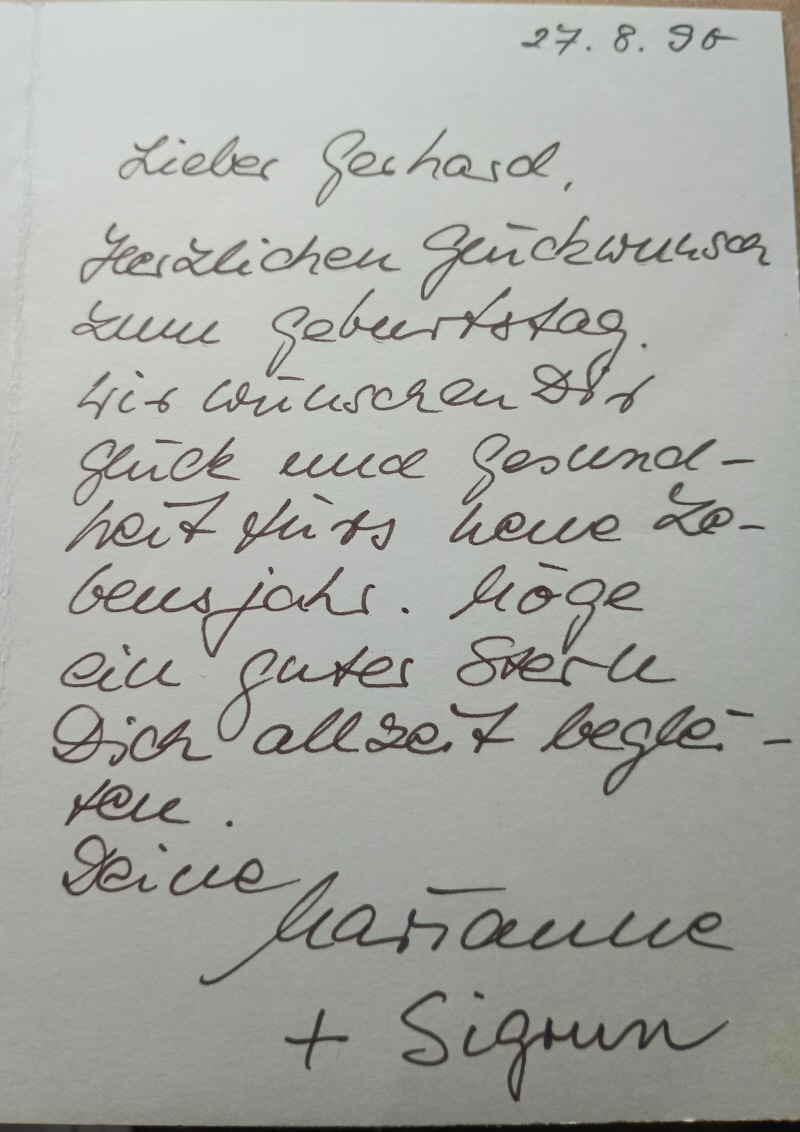 27. 8. 96
Lieber Gerhard,
Herzlichen Glückwunsch
zum Geburtstag.
Wir wünschen Dir
Glück und Gesund-
heit fürs neue Le-
bensjahr. Möge
ein guter Stern
Dich allzeit beglei-
ten.
Deine
Marianne
+ Sigrun